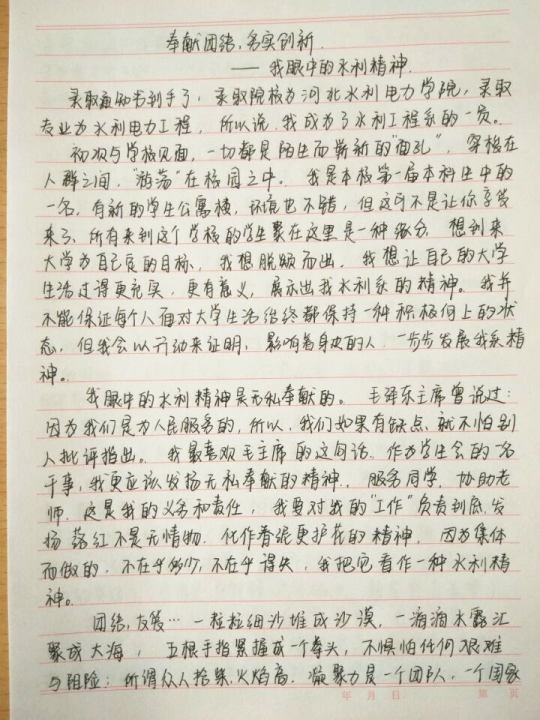 奉献团结，务实创新
——我眼中的水利精神
录取通知书到手了，录取院校为河北水利电力学院，录取
专业为水利电力工程，所以说，我成为了水利工程系的一员。
初次与学校见面，一切都是陌生而崭新的"面孔"，穿梭在
人群之间，"游荡"在校园之中。我是本校第一届本科生中的
一名，有新的学生公寓楼，环境也不错，但这可不是让你享受
来了，所有来到这个学校的学生聚在这里是一种缘分，想到来
大学为自己良的目标，我想脱颖而出，我想让自己的大学
生活过得更充实，更有意义，展示出我水利系的精神。我并
不能保证每个人面对大学生活始终都保持一种积极向上的状
态，但我会以行动来证明，影响着身边的人，一步步发展我系精
神。
我眼中的水利精神是无私奉献的。毛泽东主席曾说过：
因为我们是为人民服务的，所以，我们如果有缺点，就不怕别
人批评指出。我最喜欢毛主席的这句话，作为学生会的一名
干事，我更应该发扬无私奉献的精神，服务同学，协助老
师，这是我的义务和责任，我要对我的"工作"负责到底，发
扬落红不是无情物，化作春泥更护花的精神，因为集体
而做的，不在乎多少，不在乎得失，我把它看作一种水利精
神。
团结，友爱…一粒粒细沙堆成沙漠，一滴滴水露汇
聚成大海，五根手指紧握成一个拳头，不惧怕任何艰难
与阻险；所谓众人拾柴火焰高，凝聚力是一个团队，一个国家
年 月 日 第 页